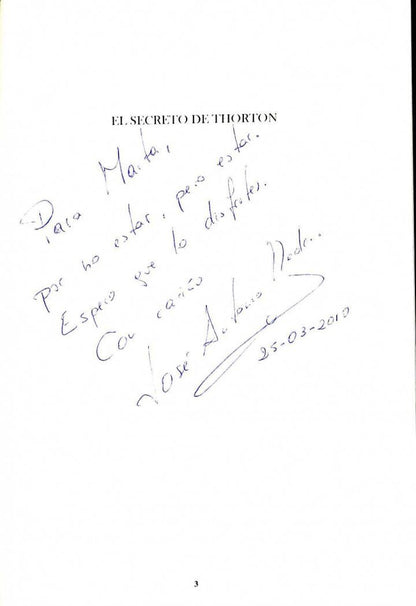 EL SECRETO DE THORTON
Para Marta,
por no estar, pero estar.
Espero que lo disfrutes.
Con cariño
José Antonio
25-03-2010
3